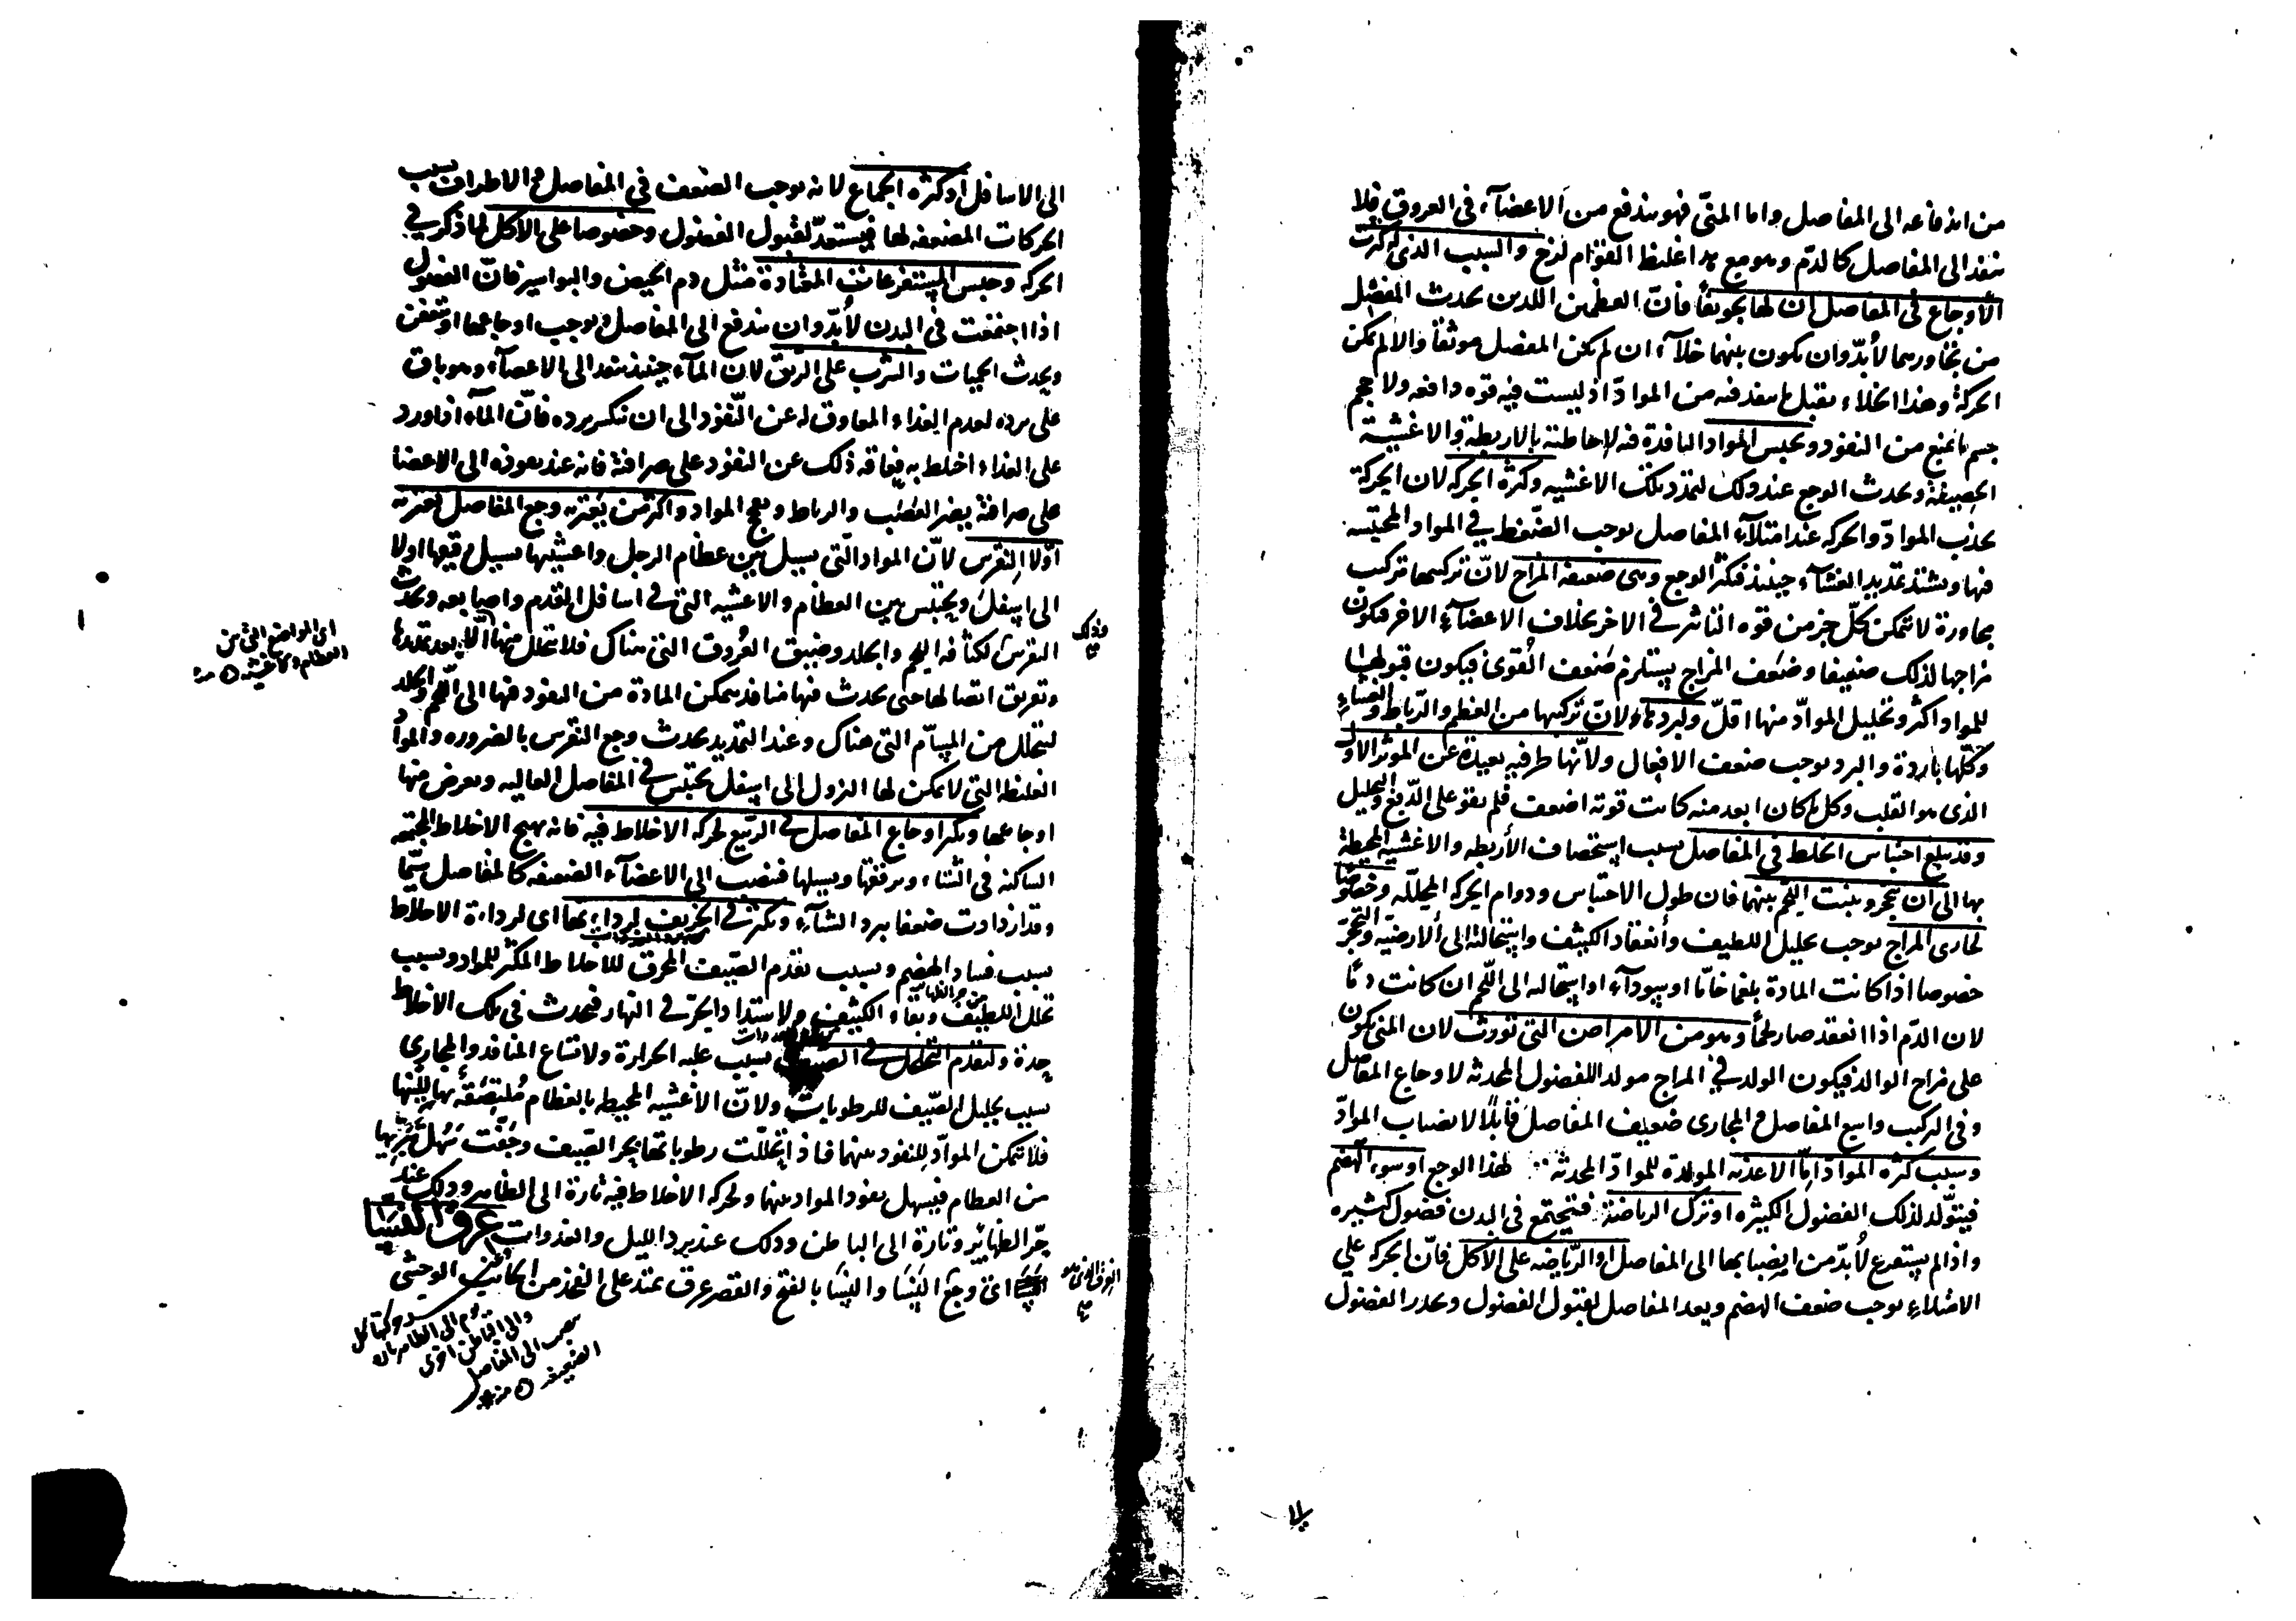 من اندفاعه الى المفاصل واما المنى فهو يندفع من الاعضآء فى العروق فلا
ينفذ الى المفاصل كالدم وهو مع هذا غليظ القوام لزج والسبب الذى له كثرت
الاوجاع فى المفاصل ان لها تجويفا فان العظمين اللذين يحدث المفصل
من تجاورهما لابد وان يكون بينهما خلآء ان لم يكن المفصل موثقا والا لم يكن
الحركة وهذا الخلاء يقبل ما ينفذ فيه من المواد اذ ليست فيه قوه دافعه ولا حجم
جسم ما يمنع من النفود وتحبس المواد النافدة فيه لاحاطته بالاربطة والاغشية
الحصيفة ويحدث الوجع عند ذلك لتمدد تلك الاغشيه وكثرة الحركه لان الحركة
تجذب المواد والحركه عند امتلآء المفاصل توجب الضغط فى المواد المحتبسه
فيها ويشتد تمديد الغشآء حينئذ فيكثر الوجع وهى ضعيفه المزاج لان تركيبها تركيب
مجاورة لا يتمكن كل جزء من قوه التاثير فى الاخر بخلاف الاعضآء الاخر فيكون
مزاجها لذلك ضعيفا وضعف المزاج يستلزم ضعف القوى فيكون قبولها
للمواد اكثر وتحليل المواد منها اقل ولبردها لان تركيبها من العظم والرباط والغشاء
وكلها باردة والبرد يوجب ضعف الافعال ولانها طرفيه بعيدة عن الموثر الاول
الذى هو القلب وكل ما كان ابعد منه كانت قوته اضعف فلم يقو على الدفع والتحليل
وقد يبلغ احتباس الخلط فى المفاصل بسبب استحصاف الأربطه والاغشيه المحيطة
بها الى ان يتحجر وينبت اللحم بينهما فان طول الاحتباس ودوام الحركه المحلله وخصوصا
لحارى المزاج يوجب تحليل اللطيف وانعقاد الكثيف واستحالته الى الأرضيه والتحجر
خصوصا اذا كانت المادة بلغما خاما او سودآء او استحاله الى اللحم ان كانت دما
لان الدم اذا انعقد صار لحما وهو من الامراض التى تورث لان المنى يكون
على مزاج الوالد فيكون الولد فى المزاج مولدا للفضول المحدثه لاوجاع المفاصل
وفى التركيب واسع المفاصل والمجارى ضعيف المفاصل قابلا لانصباب المواد
وسبب كثره المواد اما الاغذيه المولدة للمواد المحدثة لهذا الوجع او سوء الهضم
فيتولد لذلك الفضول الكثيره او ترك الرياضة فتجتمع فى البدن فضول كثيره
واذا لم يستفرع لابد من انصبابها الى المفاصل او الرياضه على الاكل فان الحركه على
الامتلاء يوجب ضعف الهضم ويعد المفاصل لقبول الفضول وتحدر الفضول
الى الاسافل او كثره الجماع لانه يوجب الضعف فى المفاصل والاطراف بسبب
الحركات المضعفه لها فيستعد لقبول الفضول وخصوصا على الاكل لما ذكر فى
الحركه وحبس المستفرعات المعتادة مثل دم الحيض والبواسير فان الفضول
اذا اجتمعت فى البدن لابد وان يندفع الى المفاصل ويوجب اوجاعها او يتعفن
ويحدث الحميات والشرب على الريق لان المآء حينئذ ينفذ الى الاعضآء وهو باق
على برده لعدم الغذاء المعاوق له عن النفود الى ان ينكسر برده فان المآء اذا ورد
على الغذاء اختلط به فعاقه ذلك عن النفود على صرافته فانه عند نفوذه الى الاعضا
على صرافته يضر العصب والرباط ويفجج المواد واكثر من يعتريه وجع المفاصل يعتريه
اولا النقرس لان المواد التى تسيل بين عظام الرجل واغشيتها تسيل فيها اولا
الى اسفل ويحتبس بين العظام والاغشيه التى فى اسافل القدم واصابعه ويحدث
النقرس لكثافه اللحم والجلد وضيق العروق التى هناك فلا يتحلل منها الا بعد تمديدها
وتفريق اتصالها حتى يحدث فيها منافذ يتمكن المادة من النفود فيها الى اللحم والجلد
ليتحلل من المسام التى هناك وعند التمديد يحدث وجع النقرس بالضروره والمواد
الغليظه التى لا يمكن لها النزول الى اسفل تحتبس فى المفاصل العاليه ويعرض منها
اوجاعها ويكثر اوجاع المفاصل فى الربيع لحركه الاخلاط فيه فانه يهيج الاخلاط المجتمعه
الساكنه فى الشتاء ويرققها ويسيلها فتنصب الى الاعضآء الضعيفه كالمفاصل سيما
وقد ازدادت ضعفا ببرد الشتآء ويكثر فى الخريف لرداءتها اى لرداءة الاخلاط
بسبب فساد الهضم وبسبب تقدم الصيف المحرق للاخلاط المكثر للمواد وبسبب
تحلل اللطيف وبقاء الكثيف ولاشتداد الحر فى النهار فيحدث فى تلك الاخلاط
حدة ولتقدم التخلخل فى الصيف بسبب غلبه الحرارة ولاتساع المنافد والمجارى
بسبب تحليل الصيف للرطوبات ولان الاغشيه المحيطه بالعظام ملتصقه بها للينها
فلا يتمكن المواد للنفود بينهما فاذا تحللت رطوباتها بحر الصيف وجفت سهل تبريها
من العظام فيسهل نفود المواد بينهما ولحركه الاخلاط فيه تارة الى الظاهر وذلك عند
حر الظهائر وتارة الى الباطن وذلك عند برد الليل والغدوات عرق النسا
اى وجع النسا والنسا بالفتح والقصر عرق يمتد على الفخذ من الجانب الوحشى
وذلك
اى المواضع التى بين
العظام والاغشيه
الى المفاصل
الضعيفه